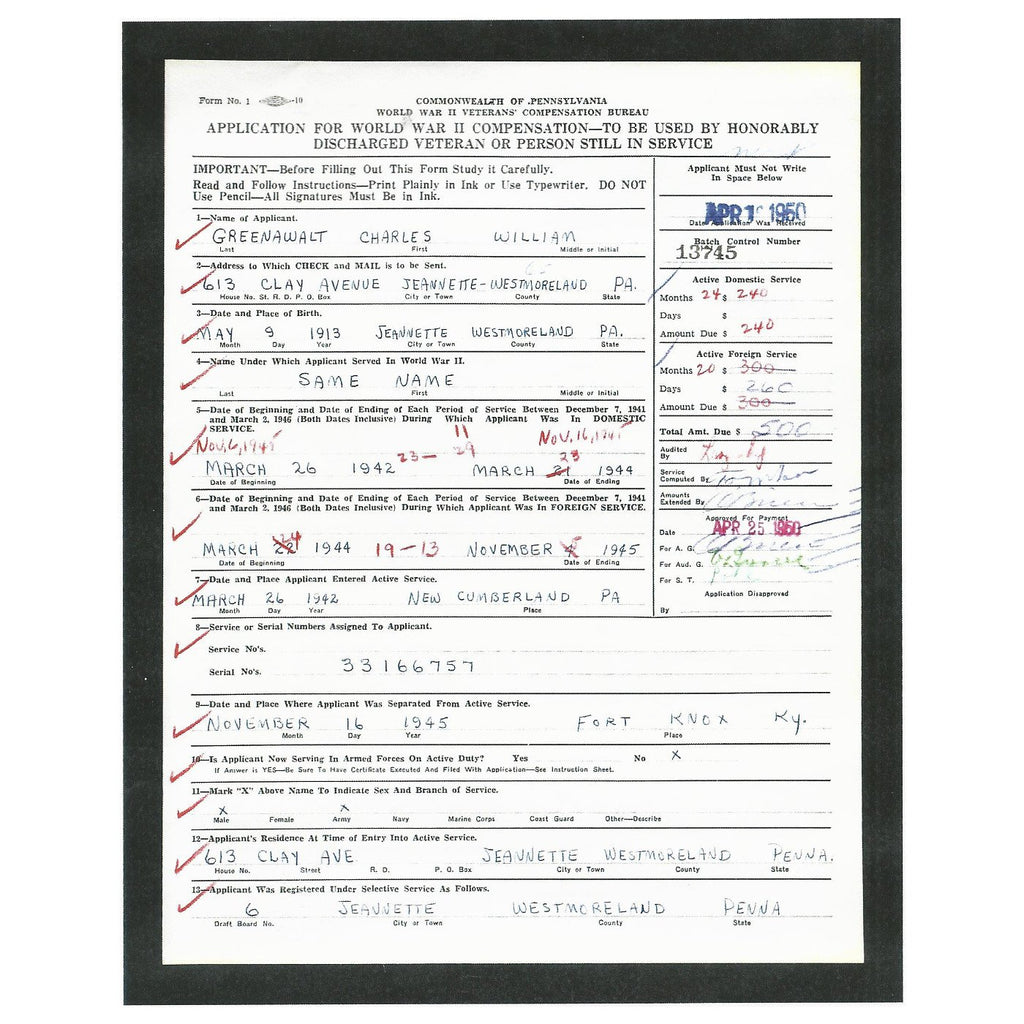 Form No. 1 -10
COMMONWEALTH OF PENNSYLVANIA
WORLD WAR II VETERANS' COMPENSATION BUREAU
APPLICATION FOR WORLD WAR II COMPENSATION—TO BE USED BY HONORABLY
DISCHARGED VETERAN OR PERSON STILL IN SERVICE
IMPORTANT—Before Filling Out This Form Study it Carefully.
Read and Follow Instructions—Print Plainly in Ink or Use Typewriter. DO NOT
Use Pencil—All Signatures Must Be in Ink.
1—Name of Applicant.
GREENAWALT CHARLES WILLIAM
Last First Middle or Initial
2—Address to Which CHECK and MAIL is to be Sent.
613 CLAY AVENUE JEANNETTE-WESTMORELAND PA.
House No. St. R. D. P. O. Box City or Town County State
3—Date and Place of Birth.
MAY 9 1913 JEANNETTE WESTMORELAND PA.
Month Day Year City or Town County State
4—Name Under Which Applicant Served In World War II.
SAME NAME
Last First Middle or Initial
5—Date of Beginning and Date of Ending of Each Period of Service Between December 7, 1941
and March 2, 1946 (Both Dates Inclusive) During Which Applicant Was In DOMESTIC
SERVICE.
11
Nov. 6, 1945 23— 29 Nov. 16, 1945
23
MARCH 26 1942 MARCH 21 1944
Date of Beginning Date of Ending
6—Date of Beginning and Date of Ending of Each Period of Service Between December 7, 1941
and March 2, 1946 (Both Dates Inclusive) During Which Applicant Was In FOREIGN SERVICE.
24 5
MARCH 22 1944 19-13 NOVEMBER 1945
Date of Beginning Date of Ending
7—Date and Place Applicant Entered Active Service.
MARCH 26 1942 NEW CUMBERLAND PA
Month Day Year Place
8—Service or Serial Numbers Assigned To Applicant.
Service No's.
Serial No's. 33166757
9—Date and Place Where Applicant Was Separated From Active Service.
NOVEMBER 16 1945 FORT KNOX Ky.
Month Day Year Place
10—Is Applicant Now Serving In Armed Forces On Active Duty? Yes No X
If Answer is YES—Be Sure To Have Certificate Executed And Filed With Application—See Instruction Sheet.
11—Mark "X" Above Name To Indicate Sex And Branch of Service.
X X
Male Female Army Navy Marine Corps Coast Guard Other—Describe
12—Applicant's Residence At Time of Entry Into Active Service.
613 CLAY AVE JEANNETTE WESTMORELAND PENNA.
House No. Street R. D. P. O. Box City or Town County State
13—Applicant Was Registered Under Selective Service As Follows.
6 JEANNETTE WESTMORELAND PENNA
Draft Board No. City or Town County State
Applicant Must Not Write
In Space Below
APR 1950
Date Application Was Received
Batch Control Number
13745
Active Domestic Service
Months 24 $ 240
Days $
Amount Due $ 240
Active Foreign Service
Months 20 $ 300
Days $ 260
Amount Due $ 300
Total Amt. Due $ 500
Audited
By
Service
Computed By
Amounts
Extended By
Approved For Payment
Date APR 25 1950
For A. G.
For Aud. G.
For S. T.
Application Disapproved
By